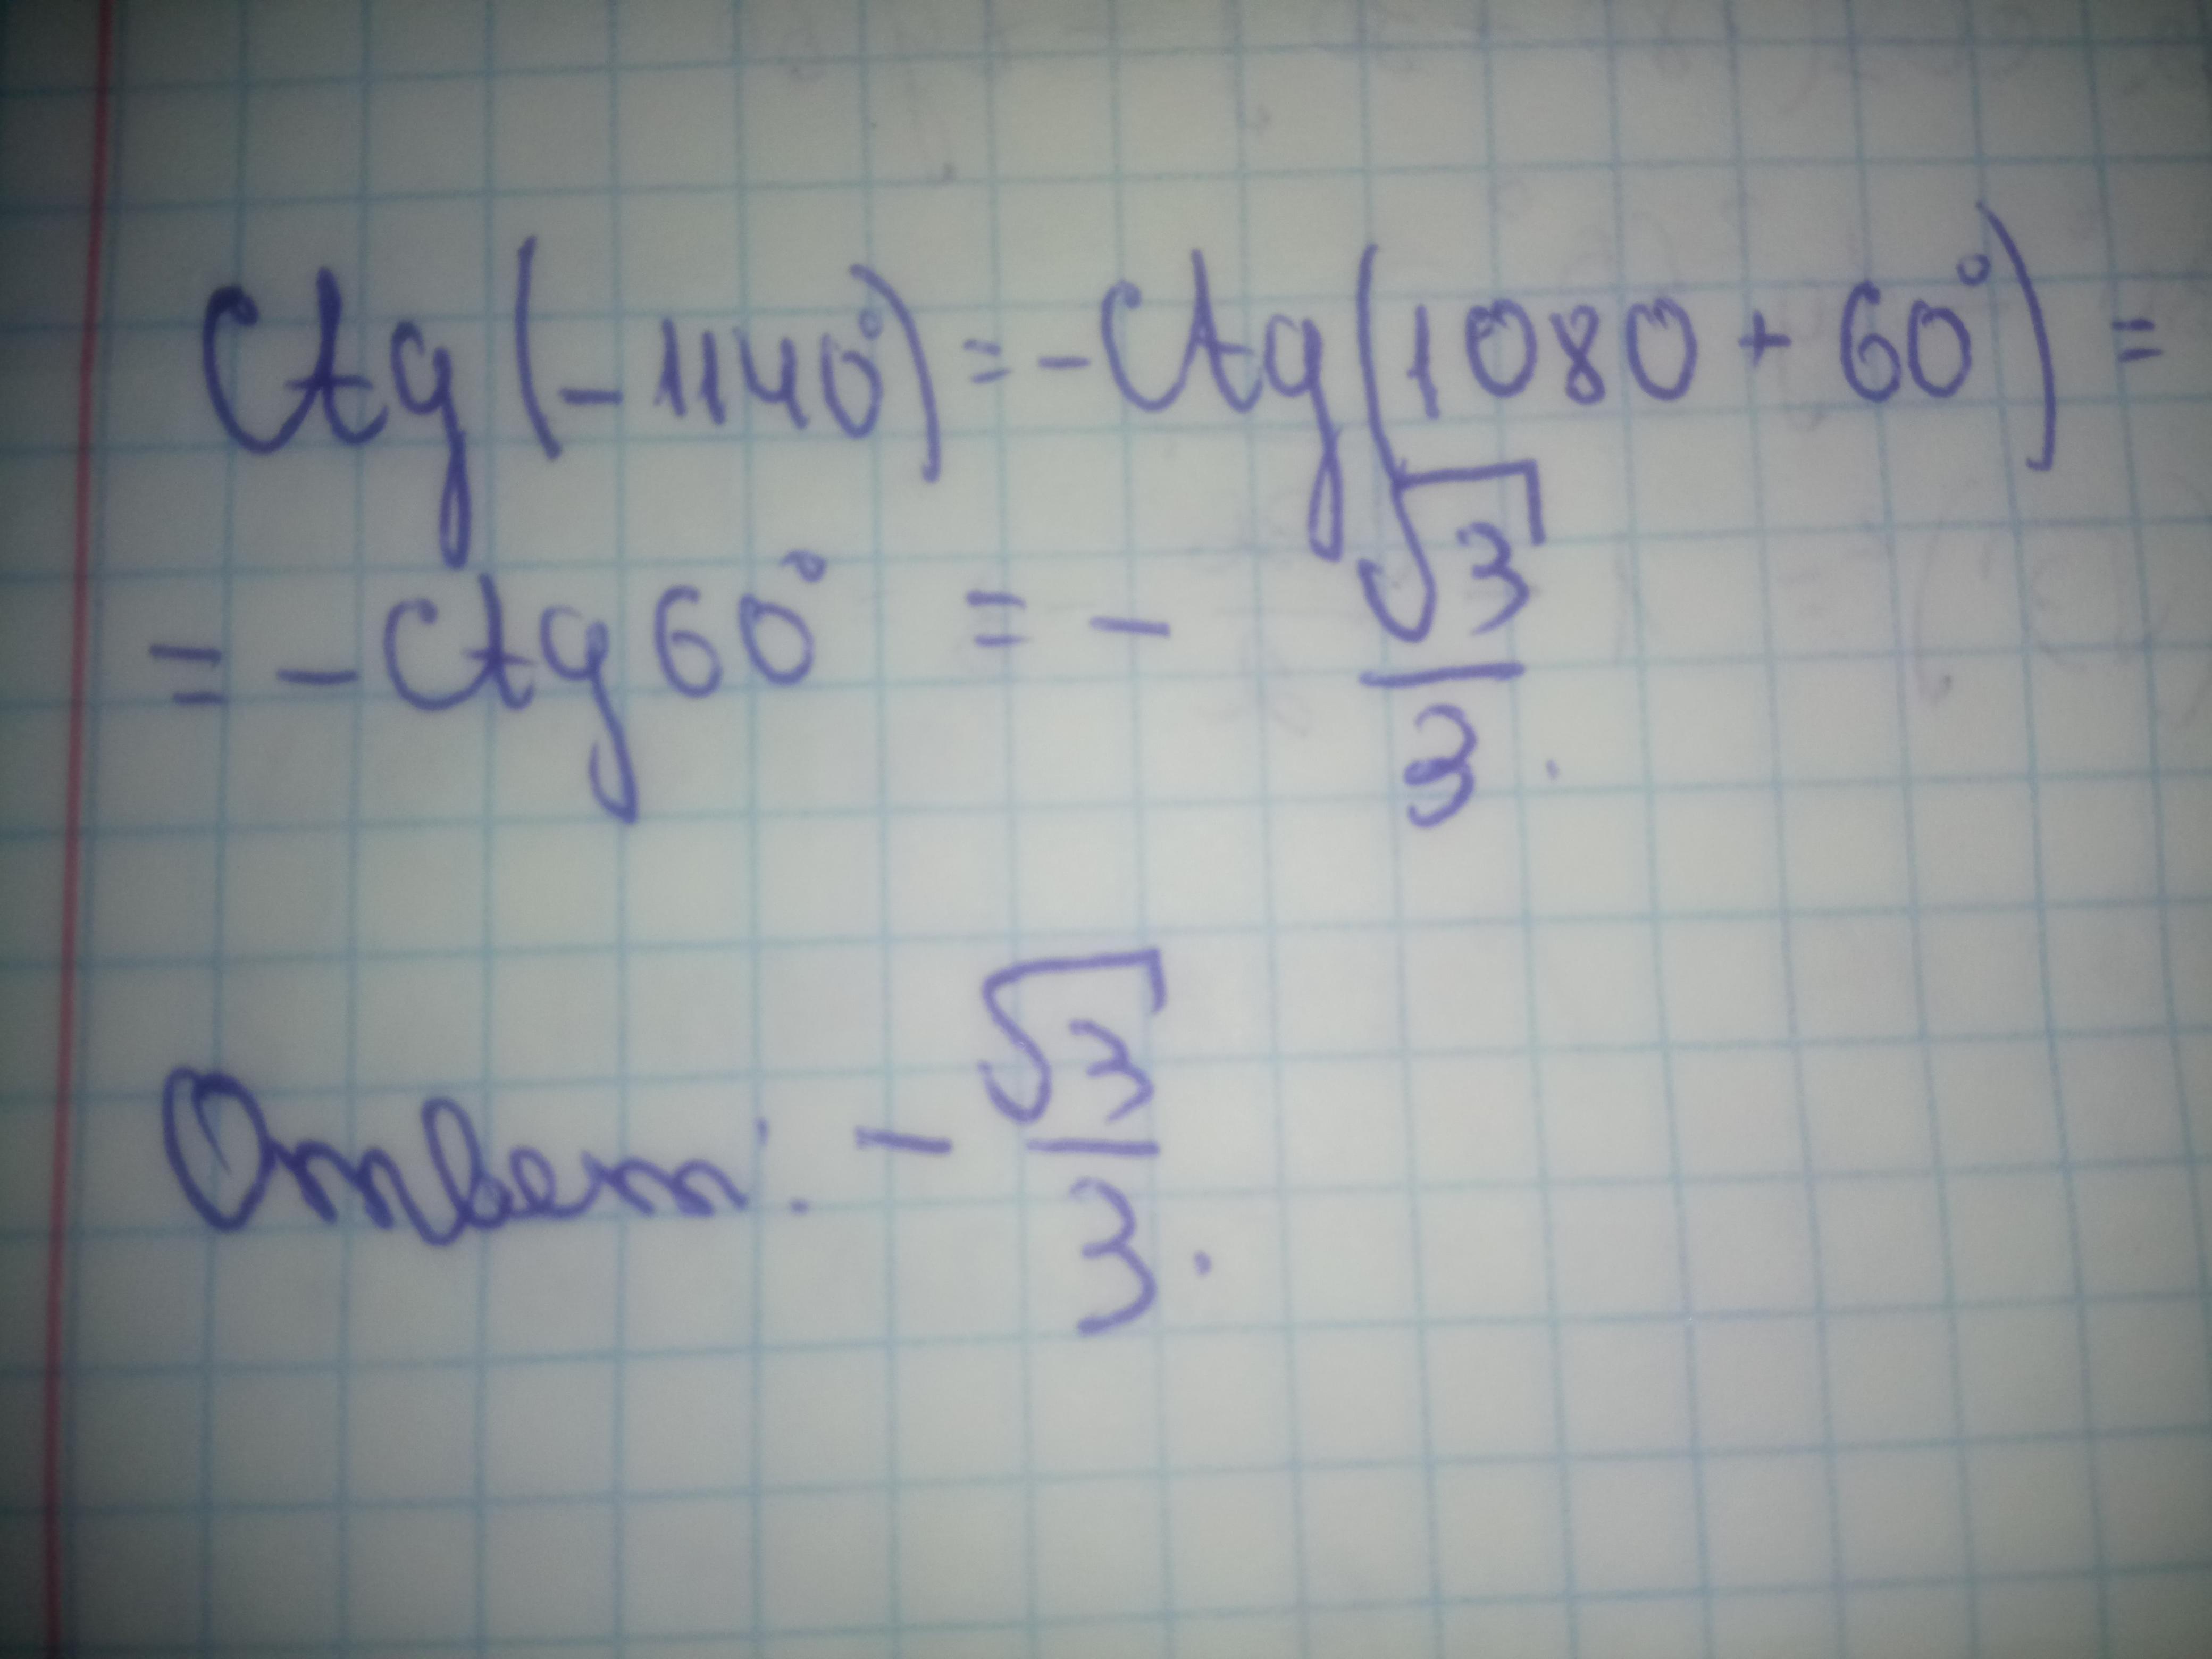 Ctg(-1140°) = -Ctg(1080 + 60°) =
= -Ctg 60° = - √3/3.
Ответ: - √3/3.